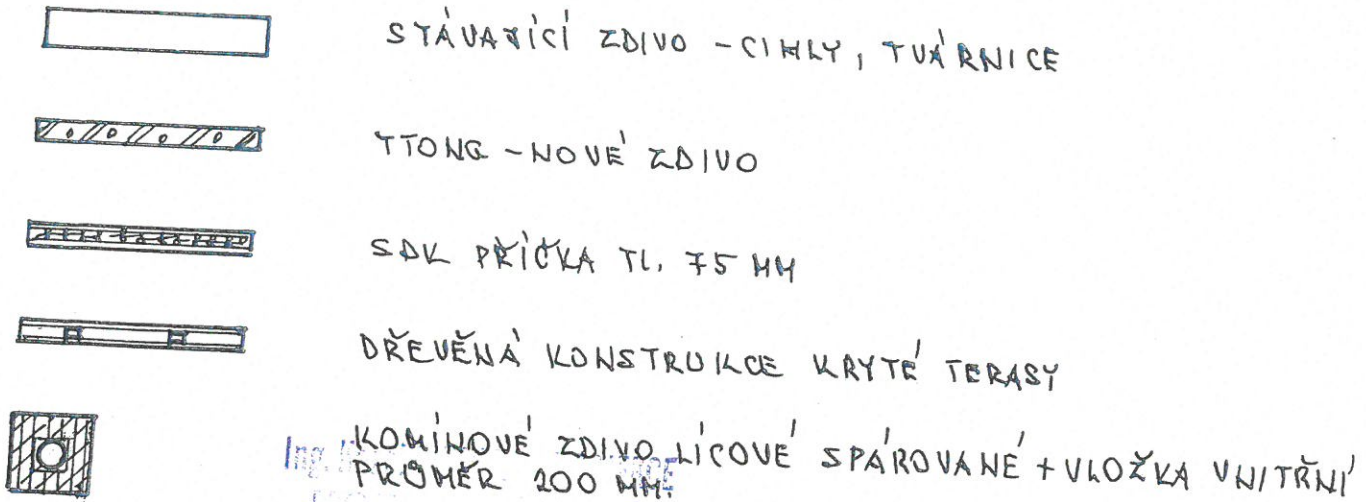 STÁVAJÍCÍ ZDIVO - CIHLY, TVÁRNICE
YTONG - NOVÉ ZDIVO
SDK PŘÍČKA TL. 75 MM
DŘEVĚNÁ KONSTRUKCE KRYTÉ TERASY
Ing.
KOMÍNOVÉ ZDIVO LÍCOVÉ SPÁROVANÉ + VLOŽKA VNITŘNÍ
PRŮMĚR 200 MM.